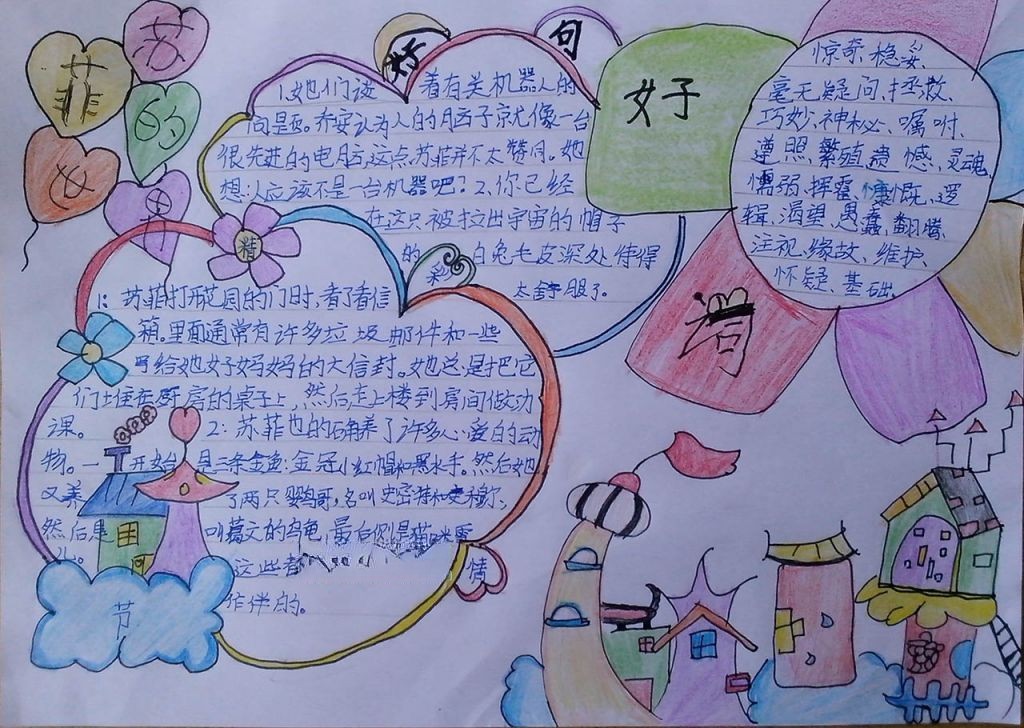 苏
菲
的
世
界
好句
1.她们谈着有关机器人的
问题。乔安认为人的脑子就像一台
很先进的电脑,这点,苏菲并不太赞同。她
想:人应该不是一台机器吧?2、你已经
在这只被拉出宇宙的帽子
的白兔毛皮深处待得
太舒服了。
好子
词
惊奇、稳妥、
毫无疑问、拯救、
巧妙、神秘、嘱咐、
遵照、繁殖、遗憾、灵魂、
懦弱、挥霍、慷慨、逻
辑、渴望、愚蠢、翻腾、
注视、缘故、维护、
怀疑、基础、
精
彩
情
节
1:苏菲打开花园的门时,看了看信
箱。里面通常有许多垃圾邮件和一些
写给她妈妈的大信封。她总是把它
们堆在厨房的桌子上,然后走上楼到房间做功
课。2:苏菲也的确养了许多心爱的动
物。一开始是三条金鱼:金冠、小红帽和黑水手。然后她
又养了两只鹦鹉哥,名叫史密特和史穆尔,
然后是叫葛文的乌龟,最后则是猫咪雪
儿。这些都
作伴的。